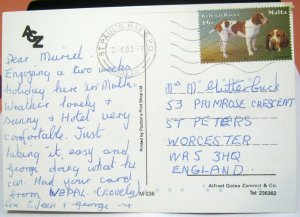 Dear Muriel.
Enjoying a two weeks
holiday here in Malta
Weather lovely &
Sunny & Hotel very
comfortable. Just
taking it easy and
George doing what he
can. Had your card
from NEPAL. (Lovely)
love Eileen & George
Printed by
M 036
ST. PAUL'S BAY
2-4.02
Kelb tal-Kacca
Malta
16c
53 PRIMROSE CRESCENT
ST PETERS
WORCESTER
WR5 3HQ
ENGLAND
Alfred Galea Zammit & Co
Tel: 236362